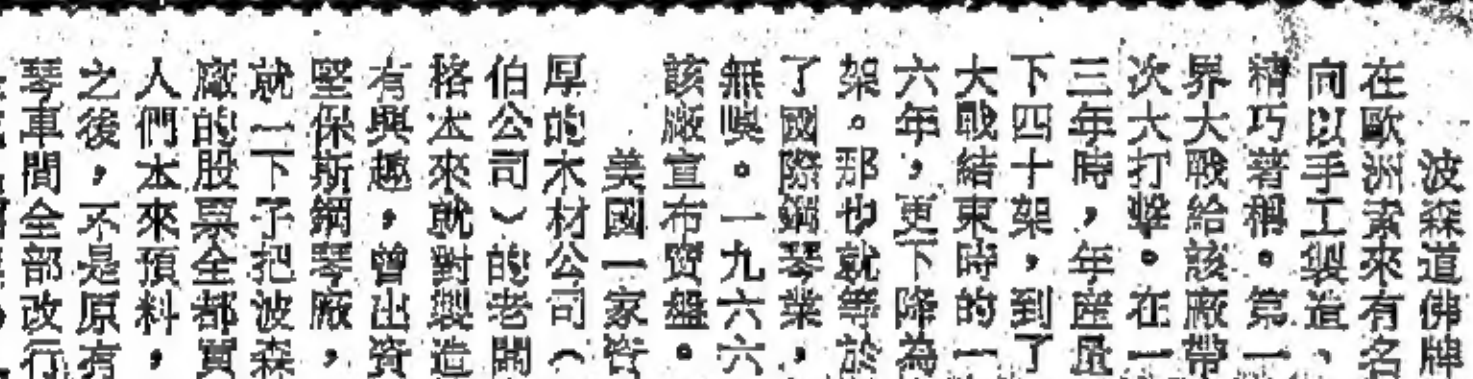 波森道佛牌
在歐洲素來有名
向以手工製造、
精巧著稱。第一
界大戰給該廠帶
次大打擊。在一
三年時，年產量
下四十架，到了
大戰結束時的一
六年，更下降為
架。那也就等於
了國際鋼琴業，
無。一九六六
該廠宣布賣盤。
美國一家資
厚的木材公司（
伯公司）的老闆
格本來就對製造
有興趣，曾出資
堅保斯鋼琴廠，
就一下子把波森
廠的股票全都買
人們本來預料，
之後，不是原有
琴車間全部改行